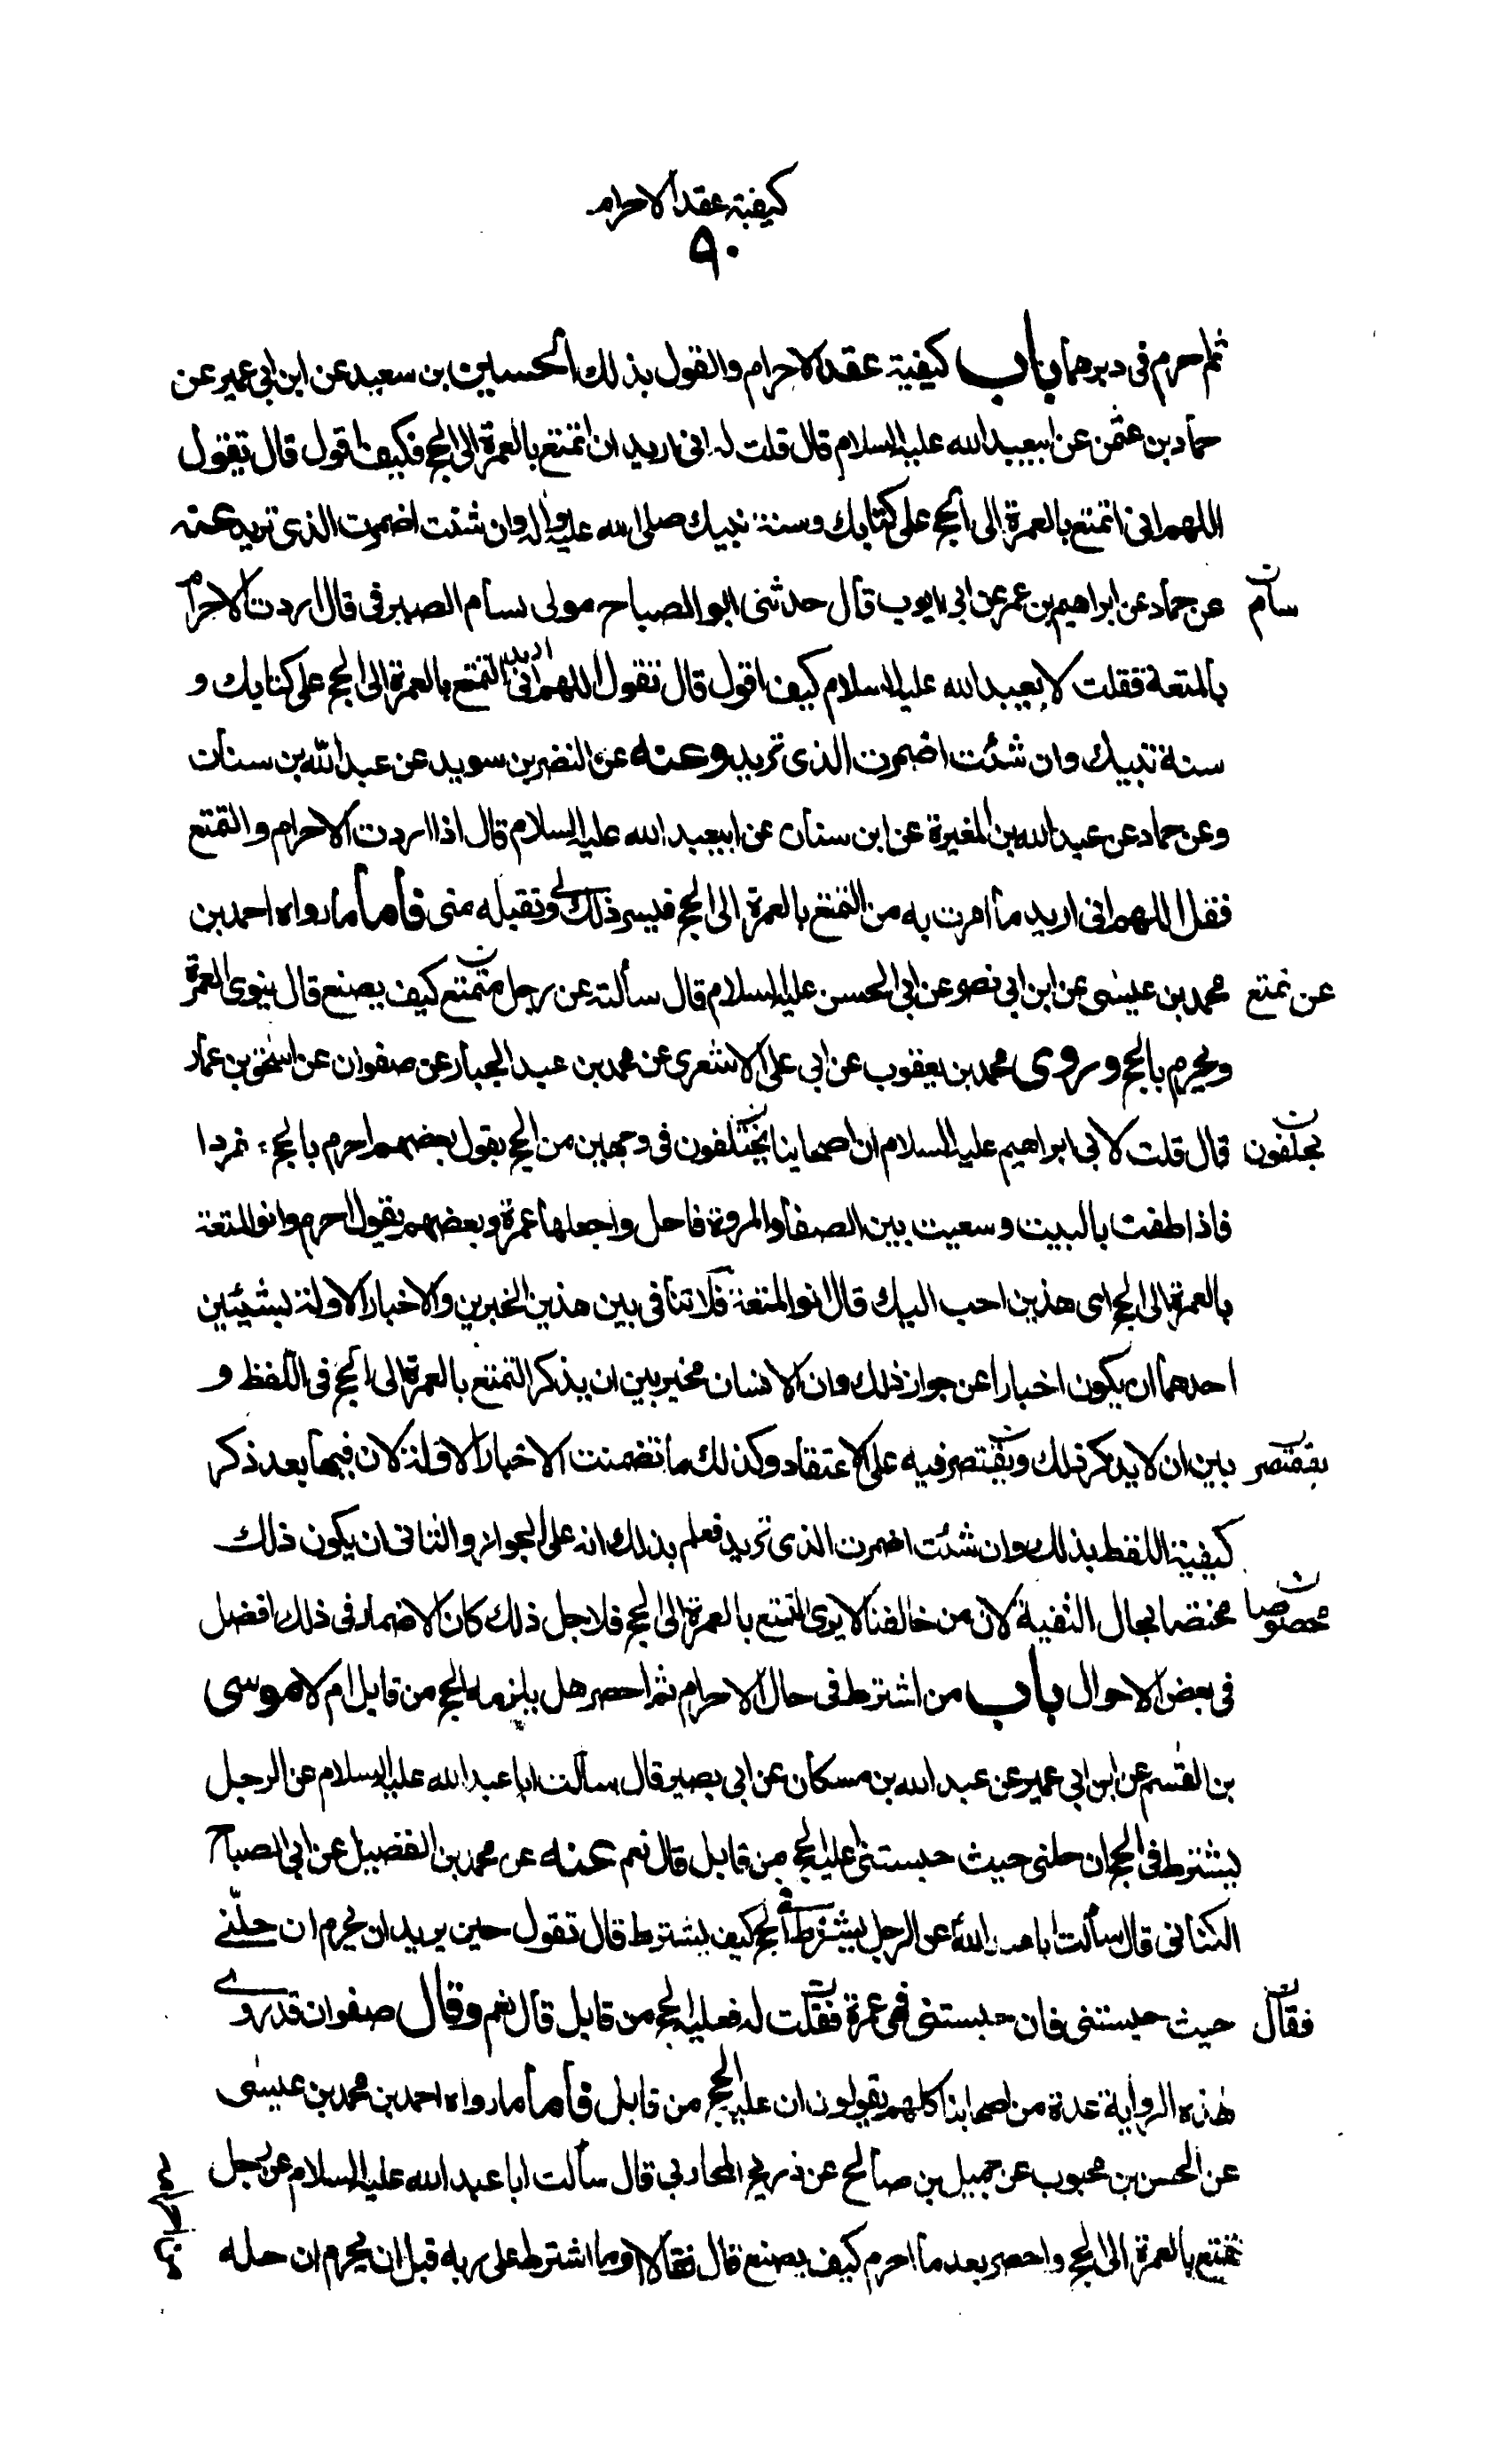 كيفية عقد الاحرام
٩٠
ثم احرم فى دبرهما باب كيفية عقد الاحرام والقول بذلك الحسين بن سعيد عن ابن ابى عمير عن
حماد بن عثمن عن ابيعبد الله عليه السلام قال قلت له انى اريد ان اتمتع بالعمرة الى الحج فكيف اقول قال تقول
اللهم انى اتمتع بالعمرة الى الحج على كتابك وسنة نبيك صلى الله عليه واله وان شئت اضمرت الذى تريد عنه
عن حماد عن ابراهيم بن عمر عن ابى ايوب قال حدثنى ابو الصباح مولى بسام الصيرفى قال اردت الاحرام
بسام ن
بالمتعة فقلت لابيعبد الله عليه السلام كيف اقول قال تقول اللهم انى اريد التمتع بالعمرة الى الحج على كتابك و
سنة نبيك وان شئت اضمرت الذى تريد وعنه عن النضر بن سويد عن عبد الله بن سنان
وعن حماد عن عبد الله بن المغيرة عن ابن سنان عن ابيعبد الله عليه السلام قال اذا اردت الاحرام والتمتع
فقل اللهم انى اريد ما امرت به من التمتع بالعمرة الى الحج فيسر ذلك لى وتقبله منى فأما ما رواه احمد بن
محمد بن عيسى عن ابن ابى نصر عن ابى الحسن عليه السلام قال سألته عن رجل متمتع كيف يصنع قال ينوى العمرة
عن تمتع
ويحرم بالحج وروى محمد بن يعقوب عن ابى على الاشعرى عن محمد بن عبد الجبار عن صفوان عن اسحق بن عمار
قال قلت لابى ابراهيم عليه السلام ان اصحابنا يختلفون فى وجهين من الحج يقول بعضهم احرم بالحج مفردا
يختلفون ن
فاذا طفت بالبيت وسعيت بين الصفا والمروة فاحل واجعلها عمرة وبعضهم يقول احرم وانو المتعة
بالعمرة الى الحج اى هذين احب اليك قال انو المتعة فلا تنافى بين هذين الخبرين والاخبار الاولة بشيئين
احدهما ان يكون اخبارا عن جواز ذلك وان الانسان مخير بين ان يذكر التمتع بالعمرة الى الحج فى اللفظ و
بين ان لا يذكر ذلك ويقتصر فيه على الاعتقاد وكذلك ما تضمنت الاخبار الاولة لان فيها بعد ذكر
يقتصر
كيفية اللفظ بذلك وان شئت اضمرت الذى تريد فعلم بذلك انه على الجواز والثانى ان يكون ذلك
مختصا بحال التقية لان من خالفنا لا يرى التمتع بالعمرة الى الحج فلاجل ذلك كان الاضمار فى ذلك افضل
مخصوصا
فى بعض الاحوال باب من اشترط فى حال الاحرام ثم احصر هل يلزمه الحج من قابل ام لا موسى
بن القسم عن ابن ابى عمير عن عبد الله بن مسكان عن ابى بصير قال سألت ابا عبد الله عليه السلام عن الرجل
يشترط فى الحج ان حلنى حيث حبستنى عليه الحج من قابل قال نعم عنه عن محمد بن الفضيل عن ابى الصباح
الكنانى قال سألت ابا عبد الله عن الرجل يشترط فى الحج كيف يشترط قال تقول حين يريد ان يحرم ان حلّنى
حيث حبستنى فان حبستنى فهى عمرة فقلت له فعليه الحج من قابل قال نعم وقال صفوان قد روى
فقال
هذه الرواية عدة من اصحابنا كلهم يقولون ان عليه الحج من قابل فأما ما رواه احمد بن محمد بن عيسى
عن الحسن بن محبوب عن جميل بن صالح عن ذريح المحاربى قال سألت ابا عبد الله عليه السلام عن رجل
تمتع بالعمرة الى الحج واحصر بعد ما احرم كيف يصنع قال فقال او ما اشترط على ربه قبل ان يحرم ان حله